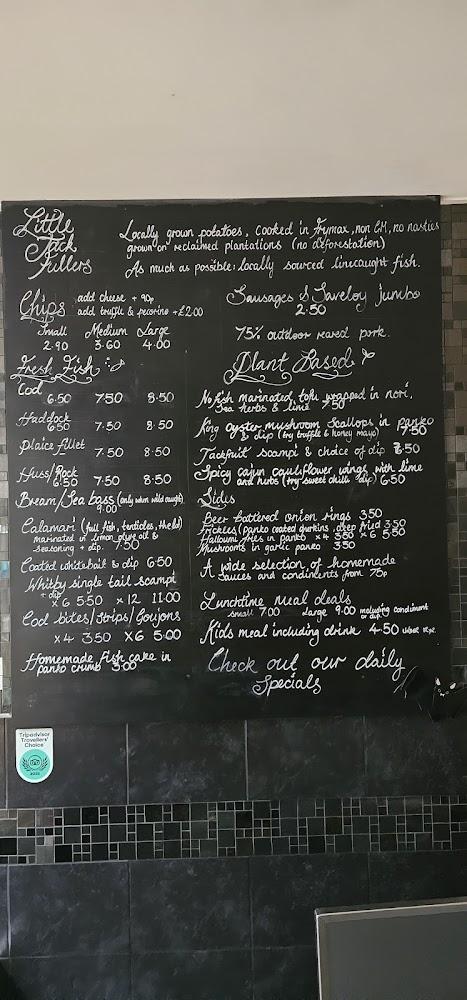 Little
Jack
Fullers
Locally grown potatoes, cooked in Frymax, non GM, no nasties
grown on reclaimed plantations (no deforestation)
As much as possible: locally sourced linecaught fish.
Chips
add cheese + 90p
add truffle & pecorino + £2.00
Small Medium Large
2.90 3.60 4.00
Fresh Fish
Cod 6.50 7.50 8.50
Haddock 6.50 7.50 8.50
Plaice fillet 7.50 8.50
Huss/Rock 6.50 7.50 8.50
Bream/Sea bass (only when wild caught)
9.00
Calamari (full fish, tenticles, the lot)
marinated in lemon, olive oil &
seasoning + dip. 7.50
Coated whitebait & dip 6.50
Whitby single tail scampi
+ dip
x 6 5.50 x 12 11.00
Cod bites/strips/Goujons
x4 3.50 x6 5.00
Homemade fish cake in
panko crumb 3.00
Sausages & Saveloy jumbo
2.50
75% outdoor reared pork.
Plant Based
No fish marinated tofu wrapped in nori,
sea herbs & lime 7.50
King oyster mushroom scallops in panko
& dip (try truffle & honey mayo) 7.50
Jackfruit scampi & choice of dip 6.50
Spicy cajun cauliflower wings with lime
and herbs (try sweet chilli dip) 6.50
Sides
Beer battered onion rings 3.50
Frickles (panko coated gherkins, deep fried 3.50
Halloumi fries in panko x4 3.50 x6 5.50
Mushrooms in garlic panko 3.50
A wide selection of homemade
sauces and condiments from 75p
Lunchtime meal deals
small 7.00 Large 9.00 including condiment
or dip
Kids meal including drink 4.50
Check out our daily
Specials
Tripadvisor
Travellers'
Choice
2022